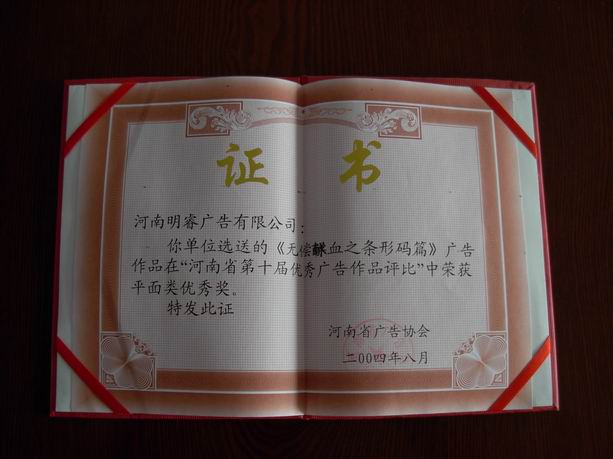 证书
河南明睿广告有限公司：
你单位选送的《无偿献血之条形码篇》广告
作品在“河南省第十届优秀广告作品评比”中荣获
平面类优秀奖。
特发此证
河南省广告协会
二00四年八月